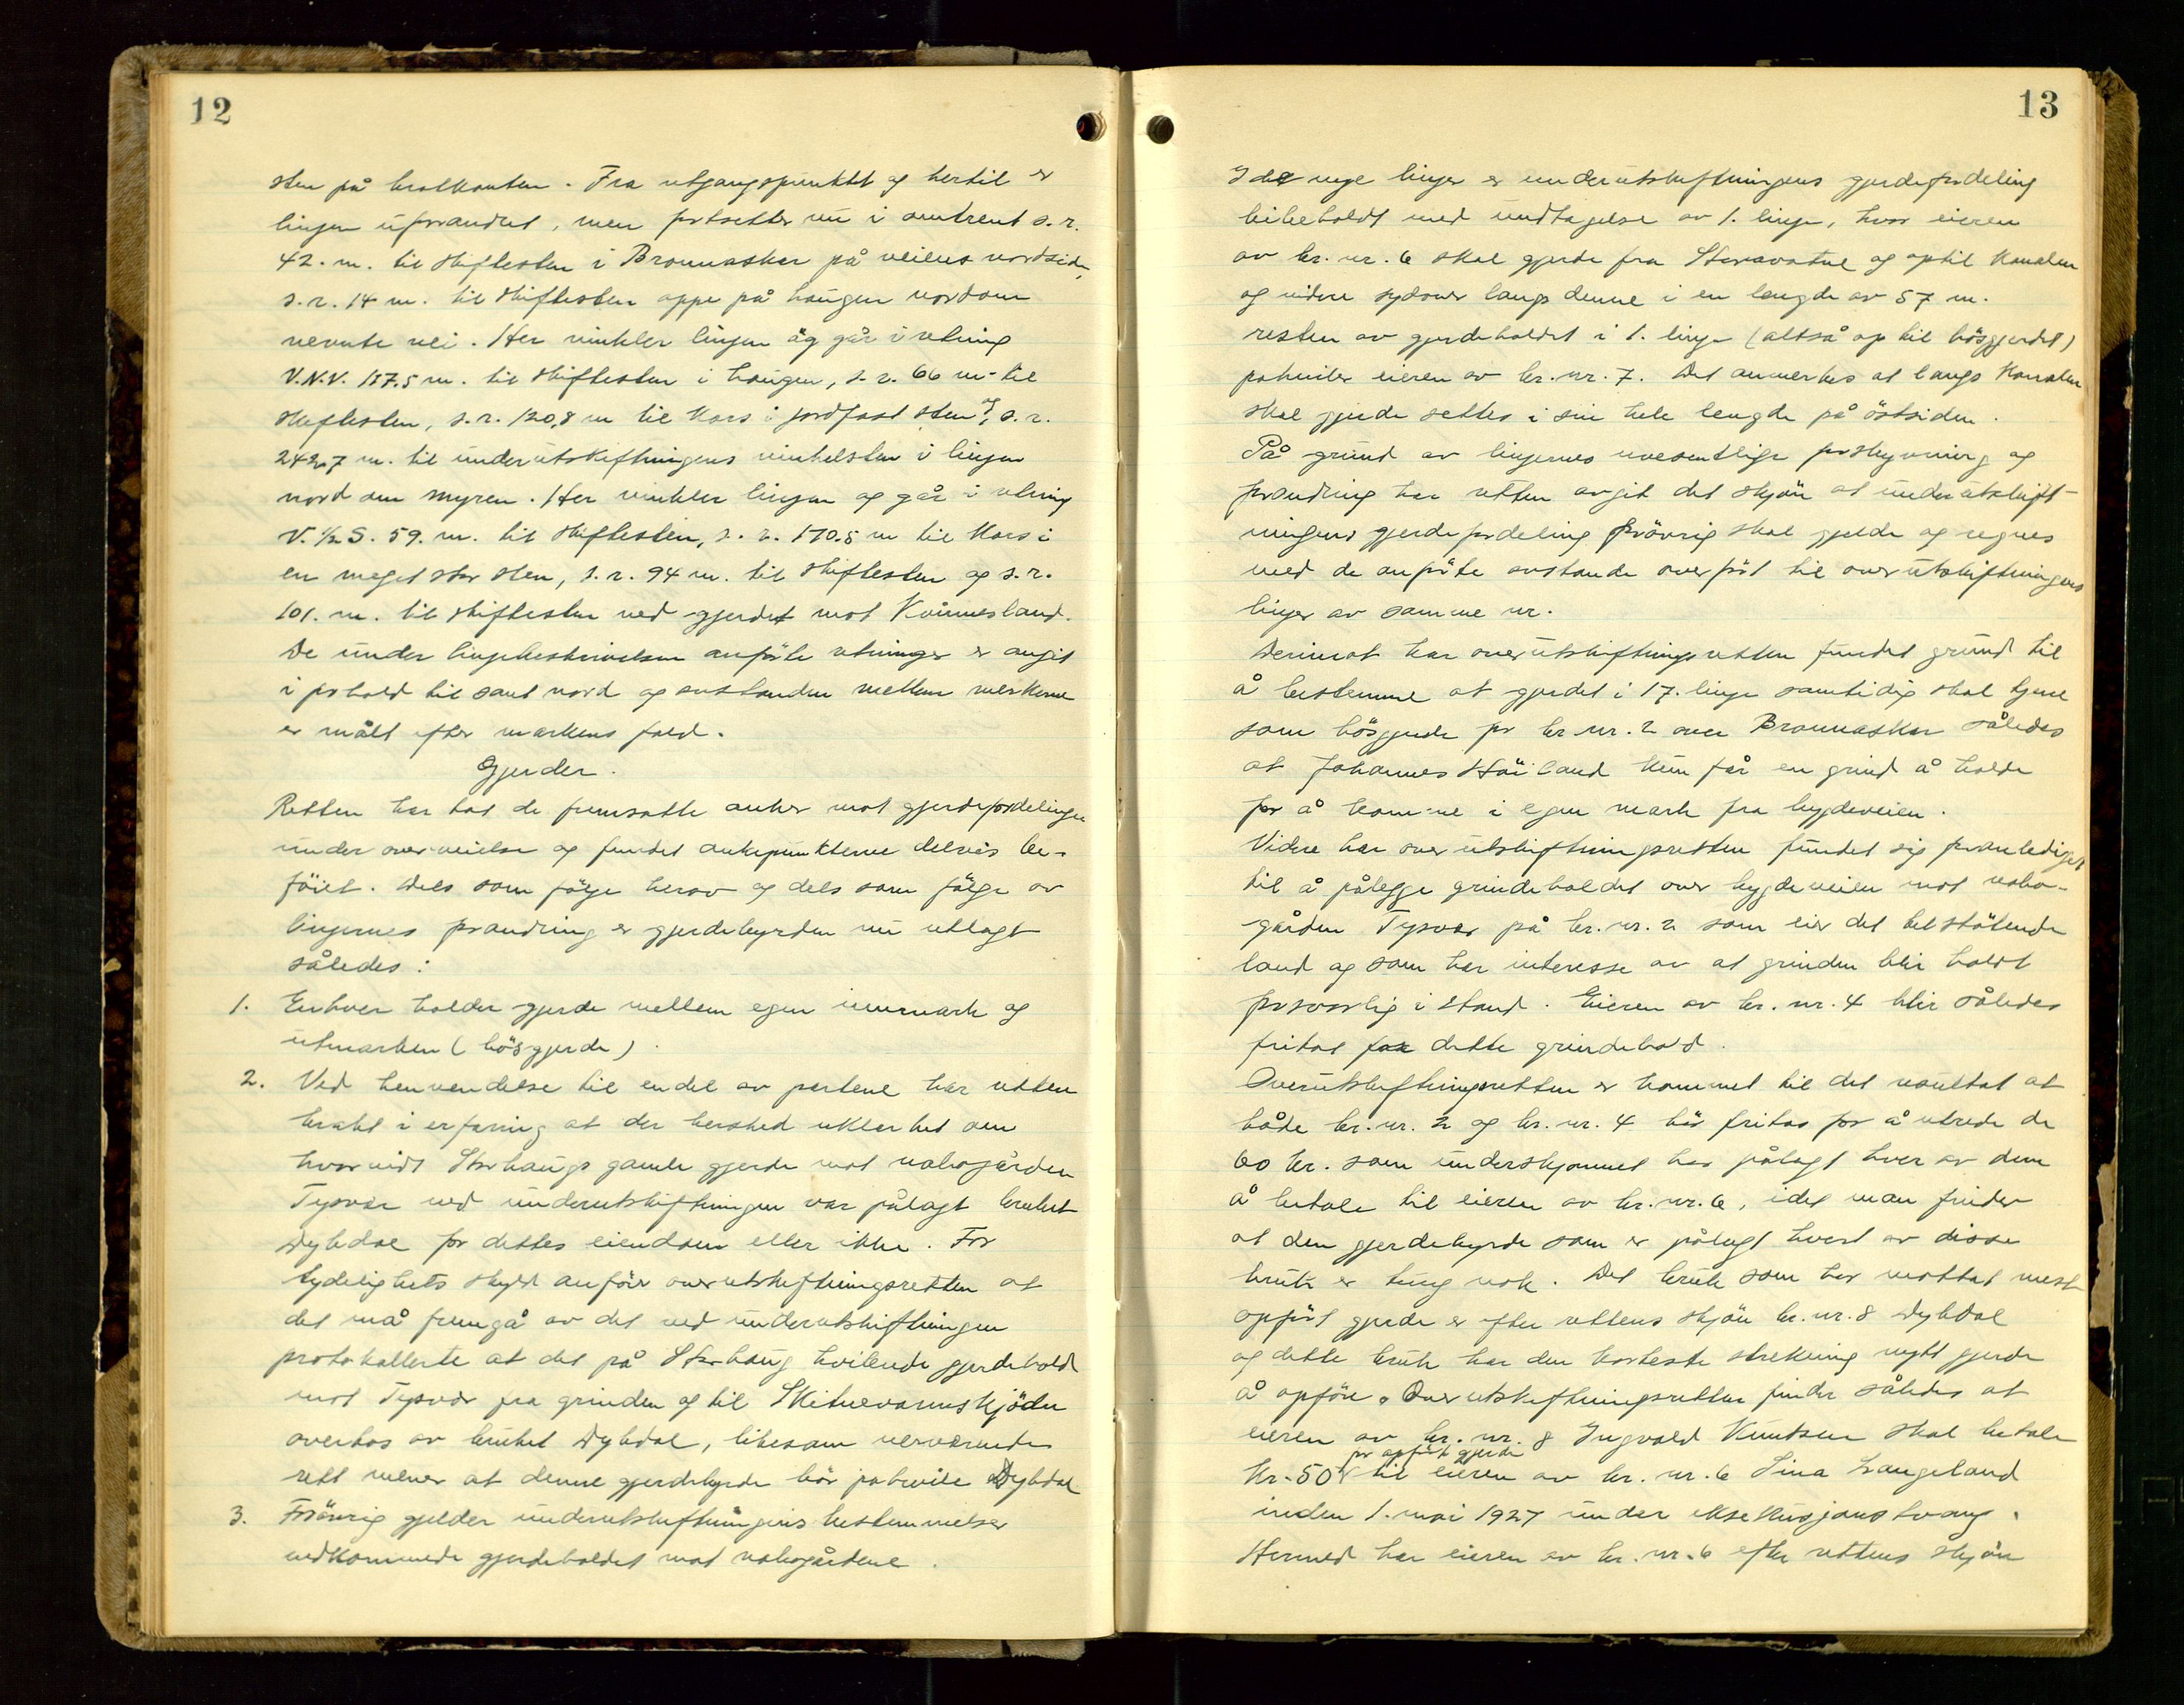 12
sten på brotkanten. Fra utgangspunktet og hertil er
linjen uforandret, men fortsetter nu i omtrent s.r.
42. m. til skiftesten i Brounaskar på veiens nordside,
s.r. 14 m. til skiftesten oppe på haugen nordom
nevnte vei. Her vinkler linjen og går i retning
V.N.V. 137.5 m. til skiftesten i haugen, s.r. 66 m. til
skiftesten, s.r. 120,8 m til kors i jordfast sten og s.r.
242,7 m. til underutskiftningens vinkelsten i linjen
nord om myren. Her vinkler linjen og går i retning
V. ½ S. 59. m. til skiftesten, s.r. 170.5 m til kors i
en meget stor sten, s.r. 94 m. til skiftesten og s.r.
101. m. til skiftesten ved gjerdet mot Kvinnesland.
De under linjebeskrivelsen anførte retninger er angit
i forhold til sant nord og avstanden mellem merkerne
er målt efter markens fald.
Gjerder.
Retten har tat de fremsatte anker mot gjerdefordelingen
under overveielse og fundet ankepunkterne delvis be-
føiet. Dels som følge herav og dels som følge av
linjernes forandring er gjerdebyrden nu utlagt
således:
1. Enhver holder gjerde mellem egen innmark og
utmarken (bösgjerde).
2. Ved henvendelse til endel av partene har retten
bragt i erfaring at der hersket uklarhet om
hvorvidt Storhaugs gamle gjerde mot nabogården
Tysvær ved underutskiftningen var pålagt bruket
Dybdal for dettes eiendom eller ikke. For
tydelighets skyld anfører overutskiftningsretten at
det må fremgå av det ved underutskiftningen
protokollerte at det på Storhaug hvilende gjerdehold
mot Tysvær fra grinden og til Skitnevannskjødn
overtas av bruket Dybdal, likesom nerværende
rett mener at denne gjerdebyrde bør påhvile Dybdal
3. Forøvrig gjelder underutskiftningens bestemmelser
vedkommende gjerdeholdet mot nabogårdene.
13
I de nye linjer er underutskiftningens gjerdefordeling
bibeholdt med undtagelse av 1. linje, hvor eieren
av br. nr. 6 skal gjerde fra Storavatne og optil kanalen
og videre sydover langs denne i en lengde av 57 m.
resten av gjerdeholdet i 1. linje (altså op til bösgjerdet)
påhviler eieren av br. nr. 7. Det anmerkes at langs kanalen
skal gjerde settes i sin hele lengde på østsiden.
På grund av linjernes uvesentlige forskyvning og
forandring har retten avgit det skjøn at underutskift-
ningens gjerdefordeling forøvrig skal gjelde og regnes
med de anførte avstande overført til overutskiftningens
linjer av samme nr.
Derimot har overutskiftningsretten fundet grund til
å bestemme at gjerdet i 17. linje samtidig skal tjene
som bösgjerde for br. nr. 2 over Brounaskar således
at Johannes Høiland kun får en grind å holde
for å komme i egen mark fra bygdeveien.
Videre har overutskiftningsretten fundet sig foranlediget
til å pålegge grindeholdet over bygdeveien mot nabo-
gården Tysvær på br. nr. 2 som eier det tilstøtende
land og som har interesse av at grinden blir holdt
forsvarlig i stand. Eieren av br. nr. 4 blir således
fritat for dette grindehold.
Overutskiftningsretten er kommet til det resultat at
både br. nr. 2 og br. nr. 4 bør fritas for å utrede de
60 kr. som underskjønnet har pålagt hver av dem
å betale til eieren av br. nr. 6, idet man finder
at den gjerdebyrde som er pålagt hvert av disse
bruk er tung nok. Det bruk som har mottat mest
opført gjerde er efter rettens skjøn br. nr. 8 Dybdal
og dette bruk har den korteste strekning nytt gjerde
å opføre. Overutskiftningsretten finder således at
eieren av br. nr. 8 Ingvald Knutsen skal betale
for opført gjerde
kr. 50 til eieren av br. nr. 6 Sina Langeland
inden 1. mai 1927 under eksekusjons tvang.
Hermed har eieren av br. nr. 6 efter rettens skjøn